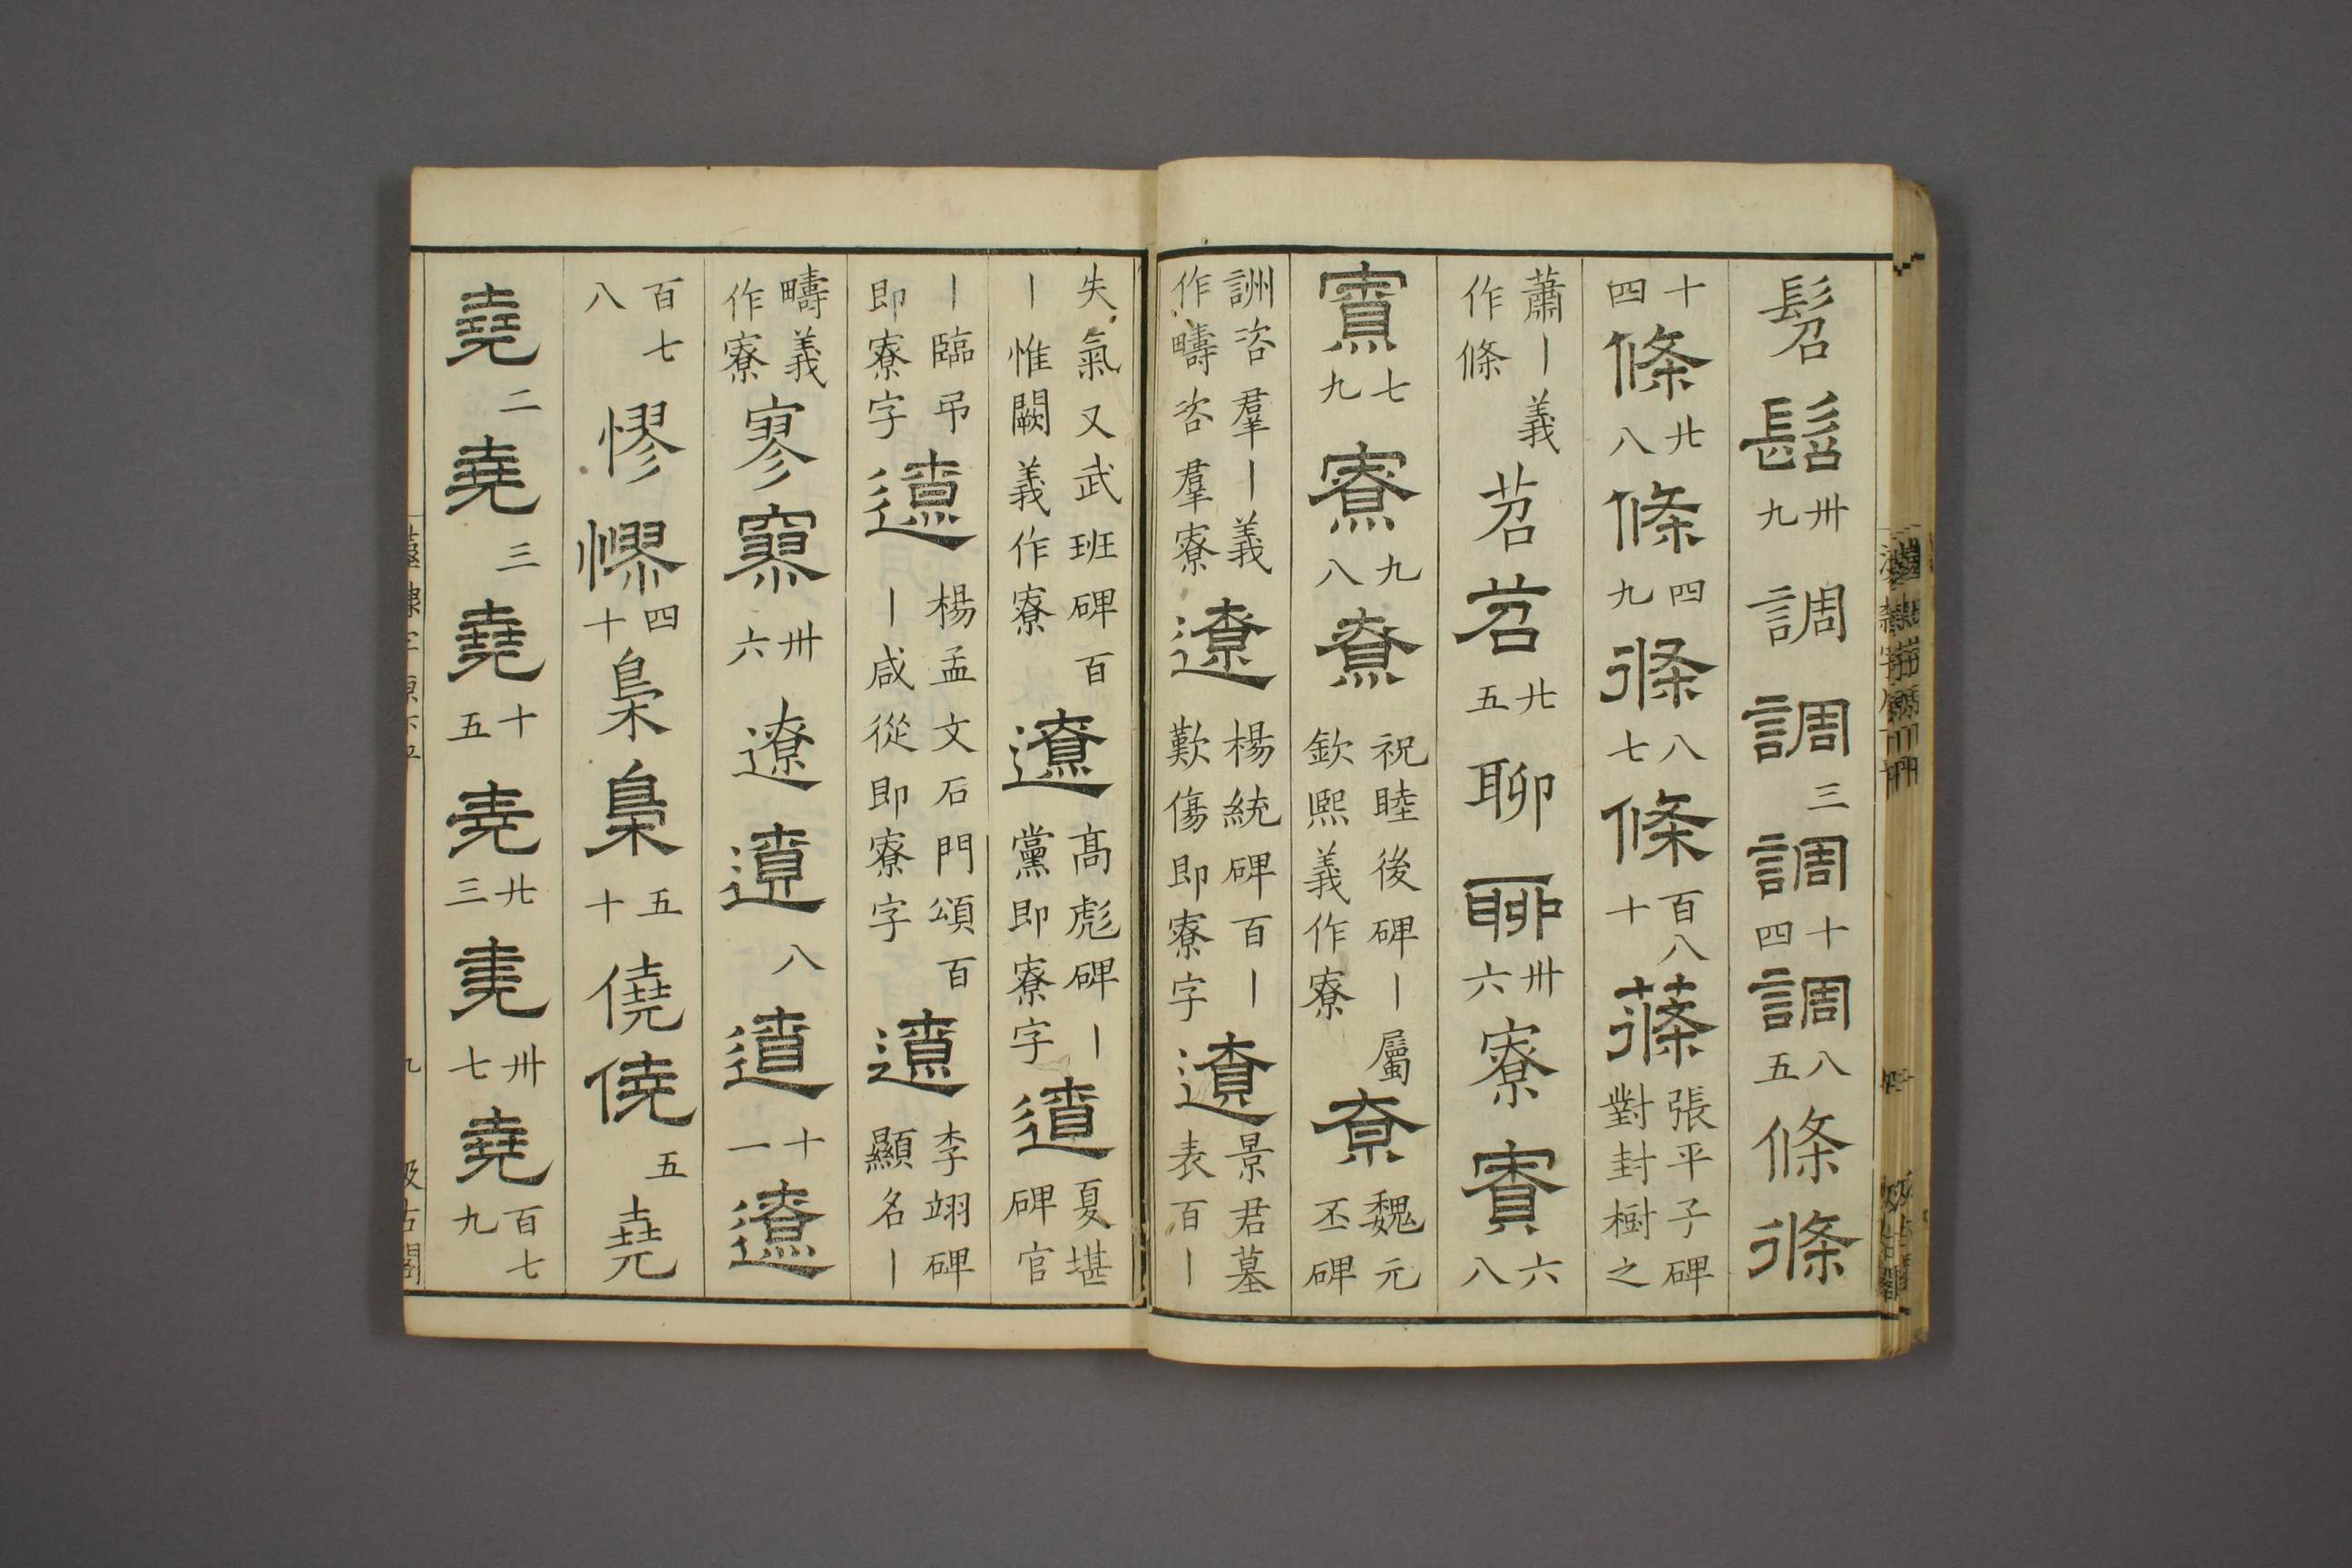 髫 髫 卅九 調 調 三 調 十四 調 八五 條 條
十四 條 廿八 條 四九 條 八七 條 百八十 蓧 張平子碑對封樹之
蕭丨義作條 苕 苕 廿五 聊 聊 卅六 寮 寮 六八
寮 七九 寮 九八 尞 祝睦後碑丨屬欽熙義作寮 尞 魏元丕碑
詶咨羣丨義作疇咨羣寮 遼 楊統碑百丨歎傷即寮字 遼 景君墓表百丨
失氣又武班碑百丨惟闕義作寮 遼 高彪碑丨黨即寮字 遼 夏堪碑官
丨臨弔即寮字 遼 楊孟文石門頌百丨咸從即寮字 遼 李翊碑顯名丨
疇義作寮 寥 寥 卅六 遼 遼 八 遼 十一 遼
百七八 憀 憀 四十 梟 梟 五十 僥 僥 五 堯
堯 二 堯 三 堯 十五 堯 廿三 堯 卅七 堯 百七九
九 汲古閣